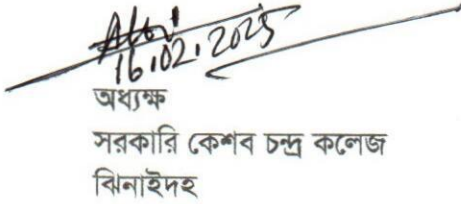 16.02.2025
অধ্যক্ষ
সরকারি কেশব চন্দ্র কলেজ
ঝিনাইদহ